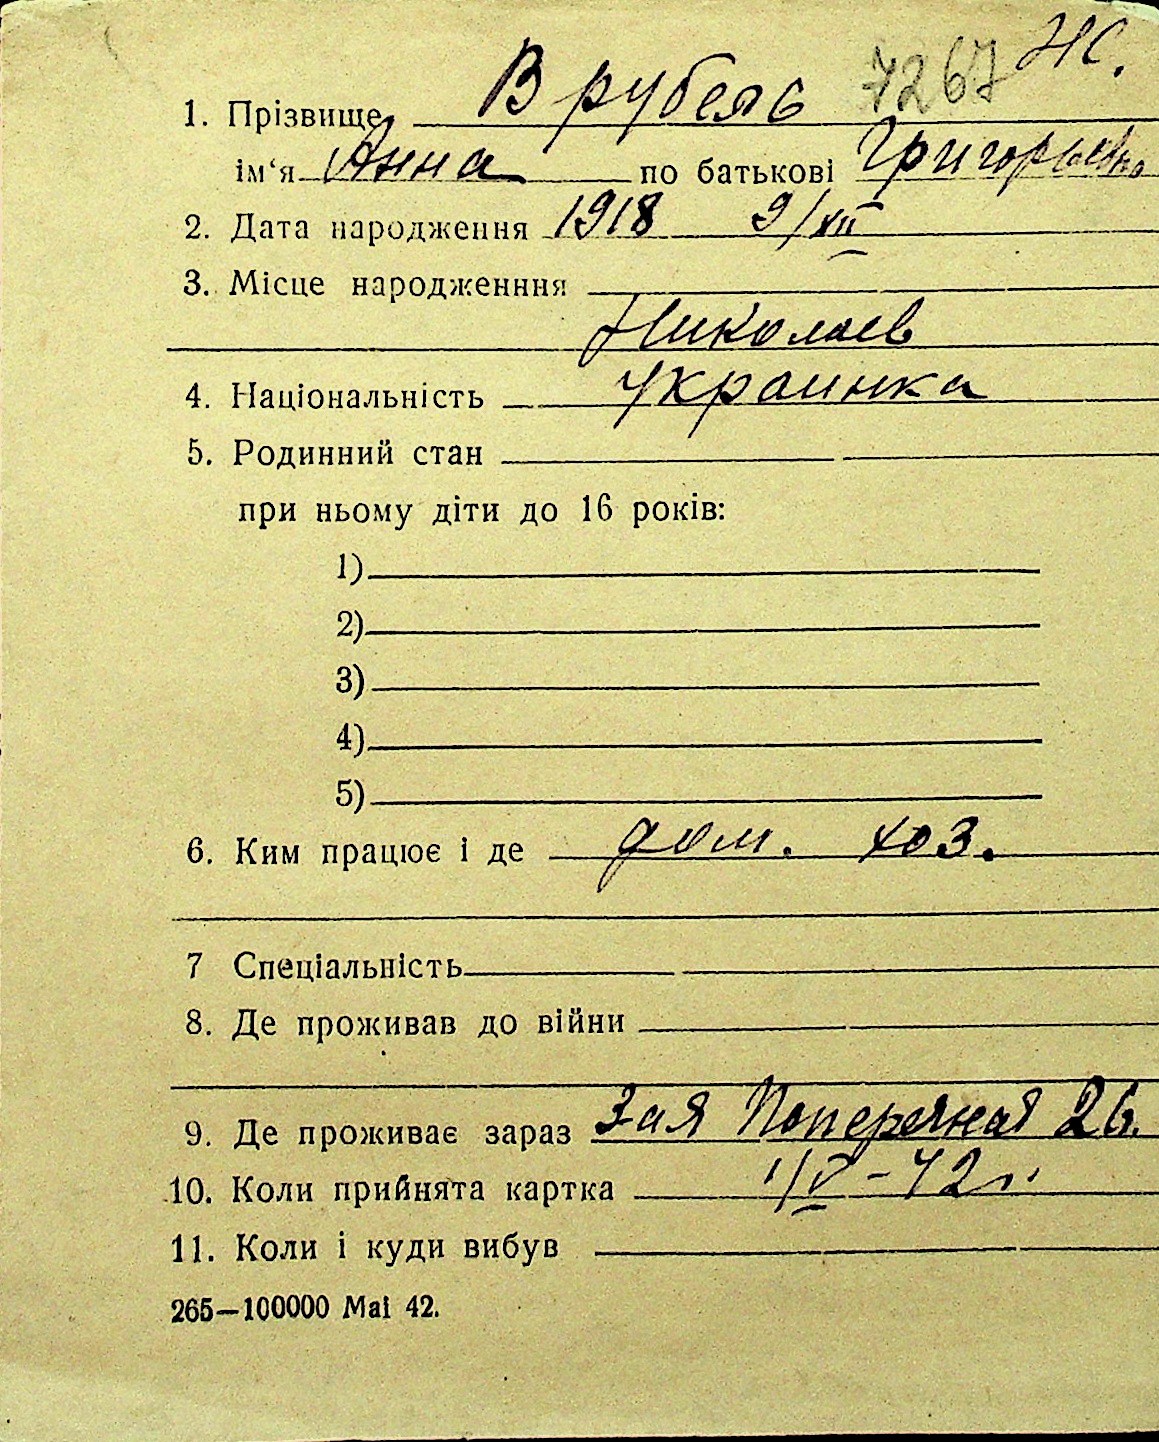 7267 Ж.
1. Прізвище Врубель
ім‘я Анна по батькові Григорьевна
2. Дата народження 1918 9/XII
3. Місце народженння
Николаев
4. Національність Украинка
5. Родинний стан
при ньому діти до 16 років:
1)
2)
3)
4)
5)
6. Ким працює і де дом. хоз.
7 Спеціальність
8. Де проживав до війни
9. Де проживає зараз 3-ая Поперечная 26.
10. Коли прийнята картка 1/V-42г.
11. Коли і куди вибув
265—100000 Mai 42.